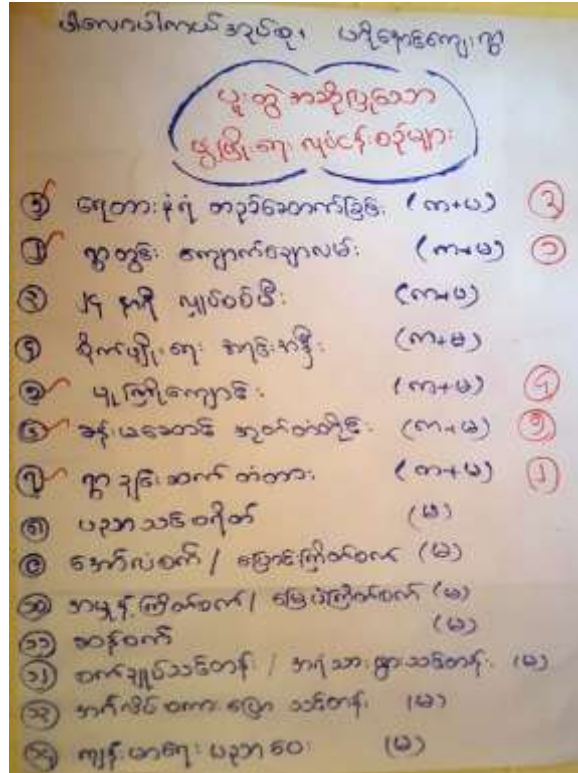 အုပ်စု၊
ပူးတွဲ အဆိုပြုသော
ဖွံ့ဖြိုးရေး လုပ်ငန်းစဉ်များ
ရေတားနံရံ တည်ဆောက်ခြင်း (က+မ) ၃
ရွာတွင်း ကျောက်ချောလမ်း (က+မ) ၁
၃ ၂၄ နာရီ လျှပ်စစ်မီး (က+မ)
၄ စိုက်ပျိုးရေး အရင်းအနှီး (က+မ)
၅ မူကြိုကျောင်း (က+မ) ၄
၆ ခန်းမဆောင် အုတ်တံတိုင်း (က+မ) ၅
၇ ရွာချင်းဆက် တံတား (က+မ) ၂
၈ ပညာသင်စရိတ် (မ)
၉ အော်လံစက် / ပြောင်းကြိတ်စက် (မ)
၁၀ အမှုန့်ကြိတ်စက် / မြေပဲကြိတ်စက် (မ)
၁၁ ဆန်စက် (မ)
၁၂ စက်ချုပ်သင်တန်း / အရံသားဖွားသင်တန်း (မ)
၁၃ စကားပြော သင်တန်း (မ)
၁၄ ကျန်းမာရေး ပညာပေး (မ)